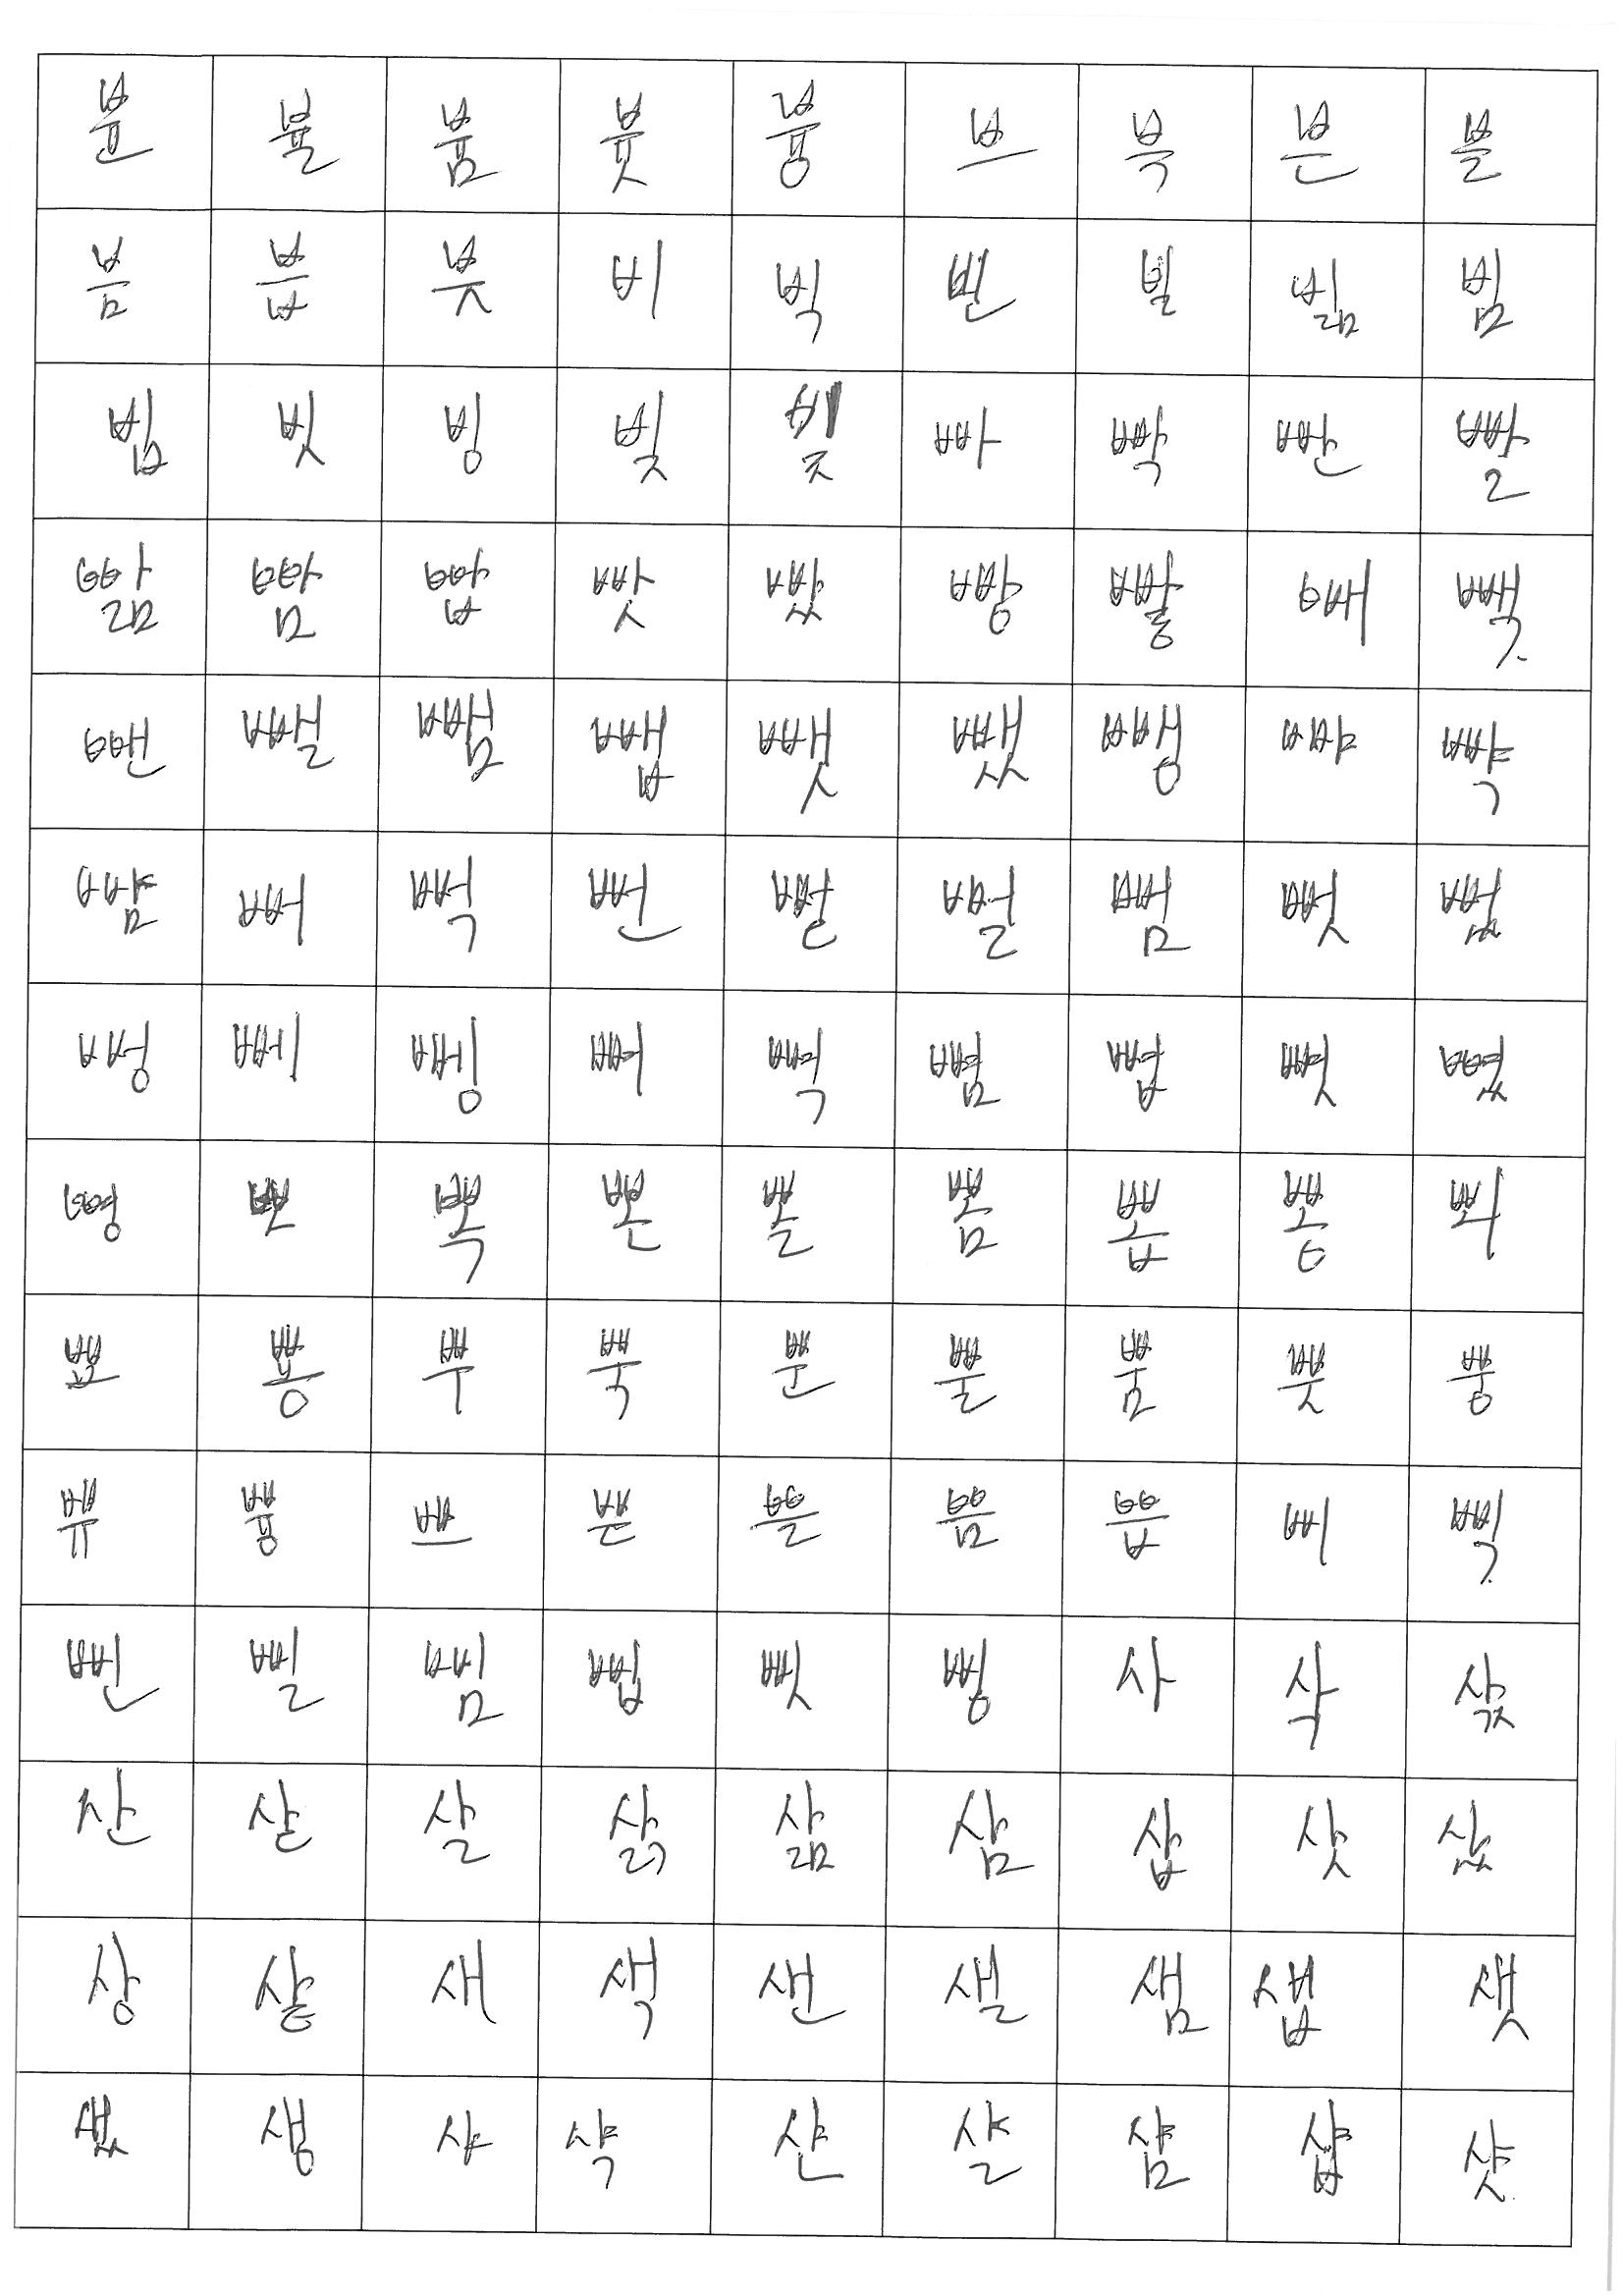 뷴 뷸 븀 븃 븅 브 븍 븐 블
븜 븝 븟 비 빅 빈 빌 빎 빔
빕 빗 빙 빚 빛 빠 빡 빤 빨
빪 빰 빱 빳 빴 빵 빻 빼 빽
뺀 뺄 뺌 뺍 뺏 뺐 뺑 뺘 뺙
뺨 뻐 뻑 뻔 뻗 뻘 뻠 뻣 뻤
뻥 뻬 뼁 뼈 뼉 뼘 뼙 뼛 뼜
뼝 뽀 뽁 뽄 뽈 뽐 뽑 뽕 뾔
뾰 뿅 뿌 뿍 뿐 뿔 뿜 뿟 뿡
쀼 쁑 쁘 쁜 쁠 쁨 쁩 삐 삑
삔 삘 삠 삡 삣 삥 사 삭 삯
산 삳 살 삵 삶 삼 삽 삿 샀
상 샅 새 색 샌 샐 샘 샙 샛
샜 생 샤 샥 샨 샬 샴 샵 샷